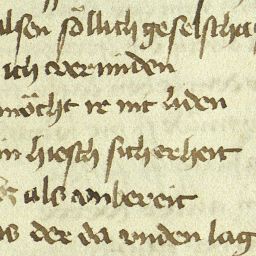 alsen söllich geselscha
ich vermiden
möcht ir nit liden
in hiesch sicherheit
als vnbereit
der da vnden lag